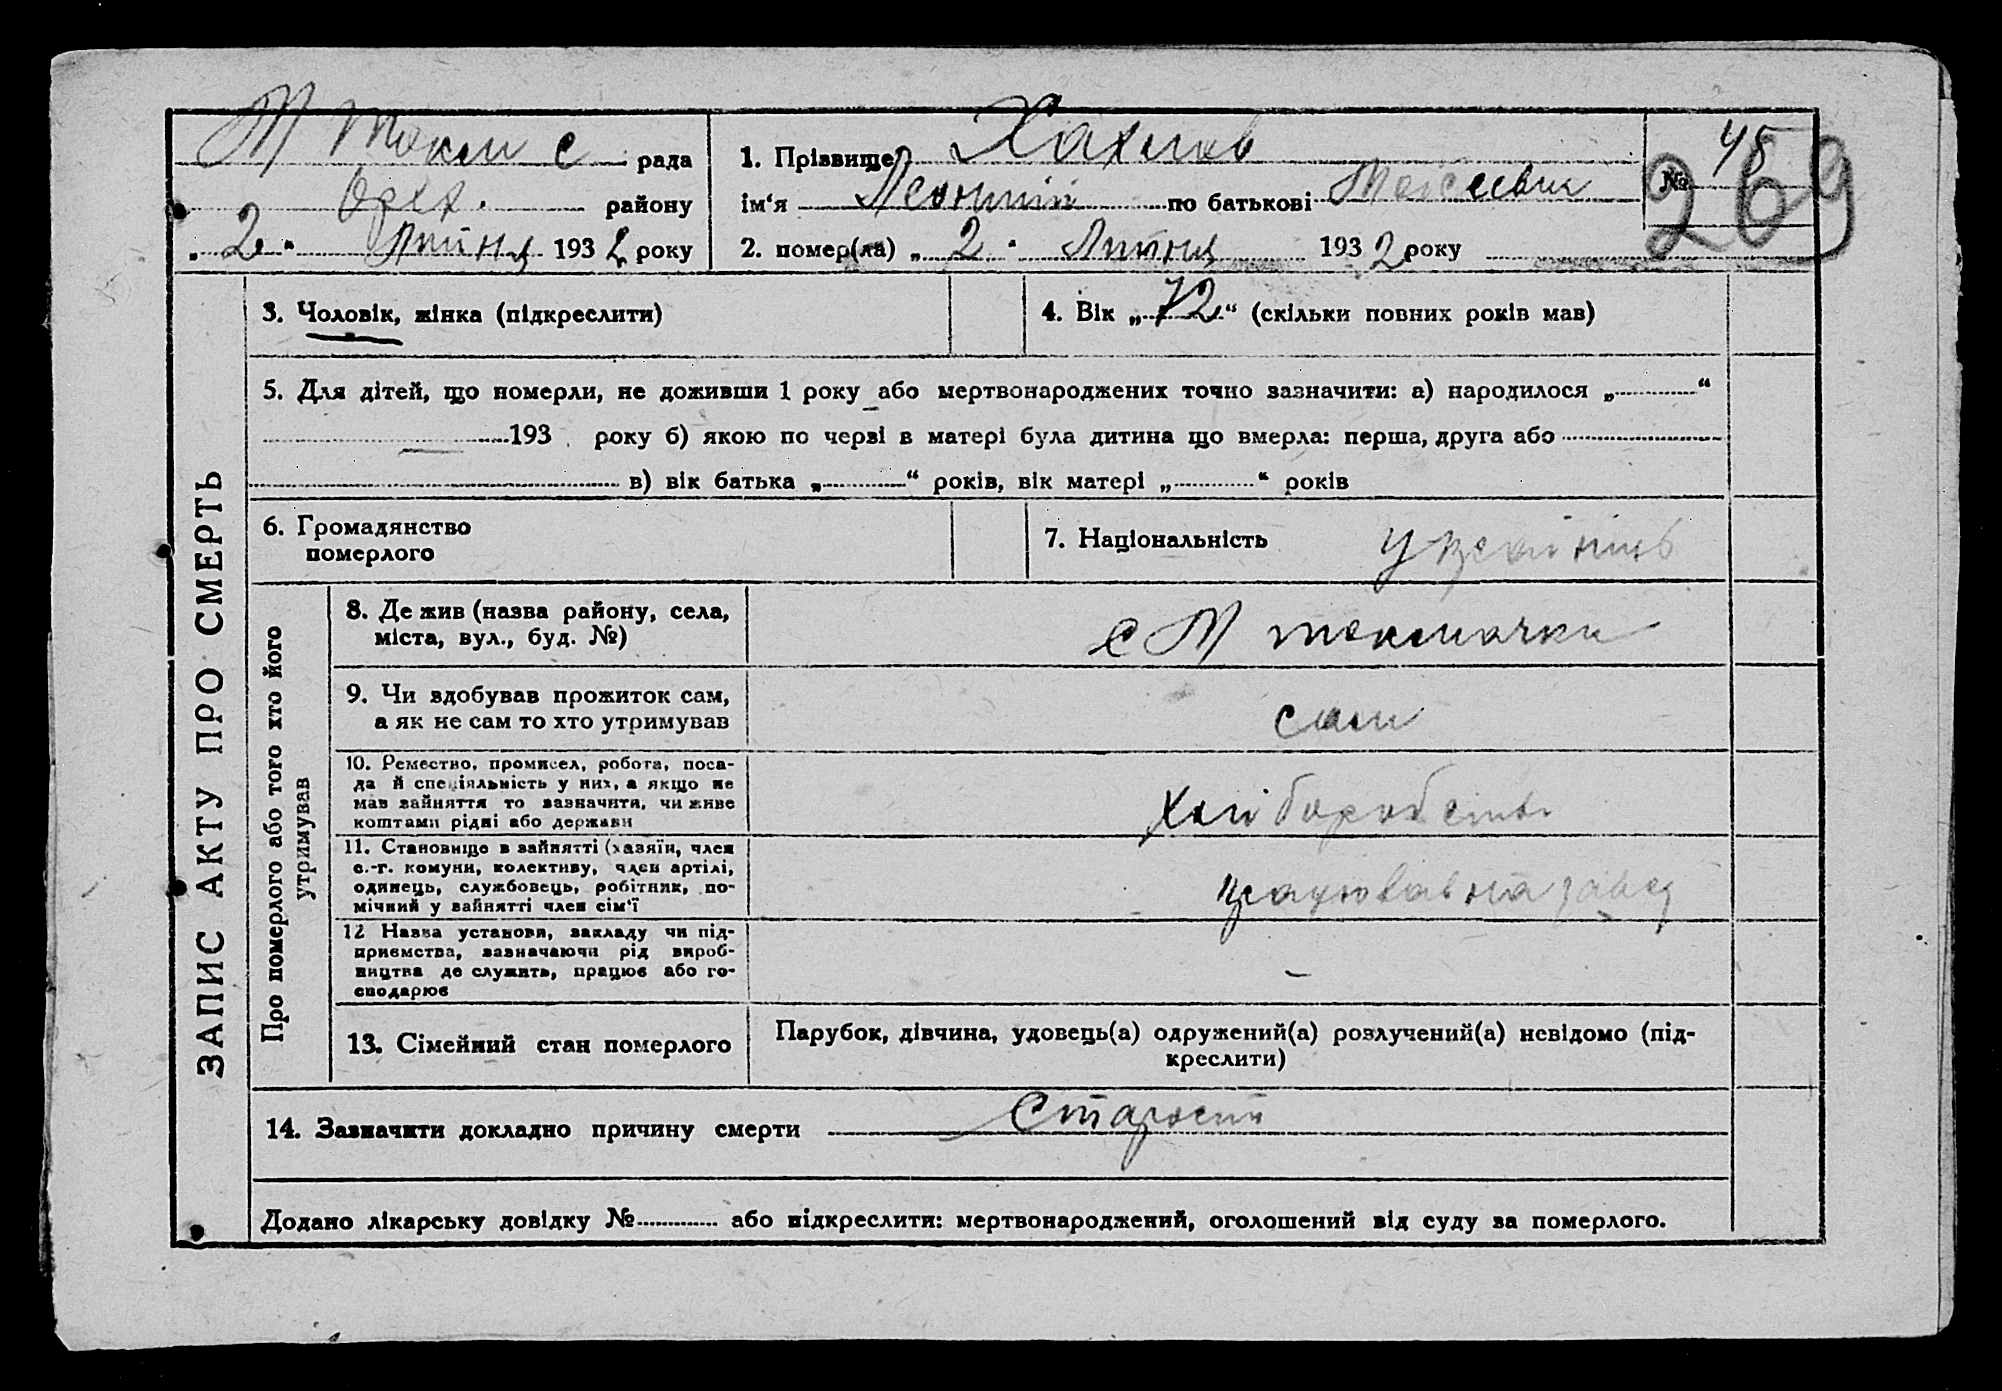 М Токм с рада
Оріх. району
„ 2 “ Липня 1932 року
1. Прізвище Хахлов
ім'я Леонтій по батькові Мойсеєвич
2. помер(ла) „ 2 “ Липня 1932 року
№ 45
269
ЗАПИС АКТУ ПРО СМЕРТЬ
3. Чоловік, жінка (підкреслити)
4. Вік „ 72 “ (скільки повних років мав)
5. Для дітей, що померли, не доживши 1 року або мертвонароджених точно зазначити: а) народилося „ “
193 року б) якою по черві в матері була дитина що вмерла: перша, друга або
в) вік батька „ “ років, вік матері „ “ років
6. Громадянство
померлого
7. Національність українець
Про померлого або того хто його
утримував
8. Де жив (назва району, села,
міста, вул., буд. №)
с М токмачки
9. Чи здобував прожиток сам,
а як не сам то хто утримував
сам
10. Ремество, промисел, робота, поса-
да й спеціяльність у них, а якщо не
мав зайняття то зазначити, чи живе
коштами рідні або держави
Хліборобство
11. Становище в зайнятті (хазяїн, член
с.-г. комуни, колективу, член артілі,
одинець, службовець, робітник, по-
мічний у зайнятті член сім'ї
працював на
12 Назва установи, закладу чи під-
приємства, зазначаючи рід вироб-
ництва де служить, працює або го-
сподарює
–
13. Сімейний стан померлого
Парубок, дівчина, удовець(а) одружений(а) розлучений(а) невідомо (під-
креслити)
14. Зазначити докладно причину смерти Старость
Додано лікарську довідку № або підкреслити: мертвонароджений, оголошений від суду за померлого.